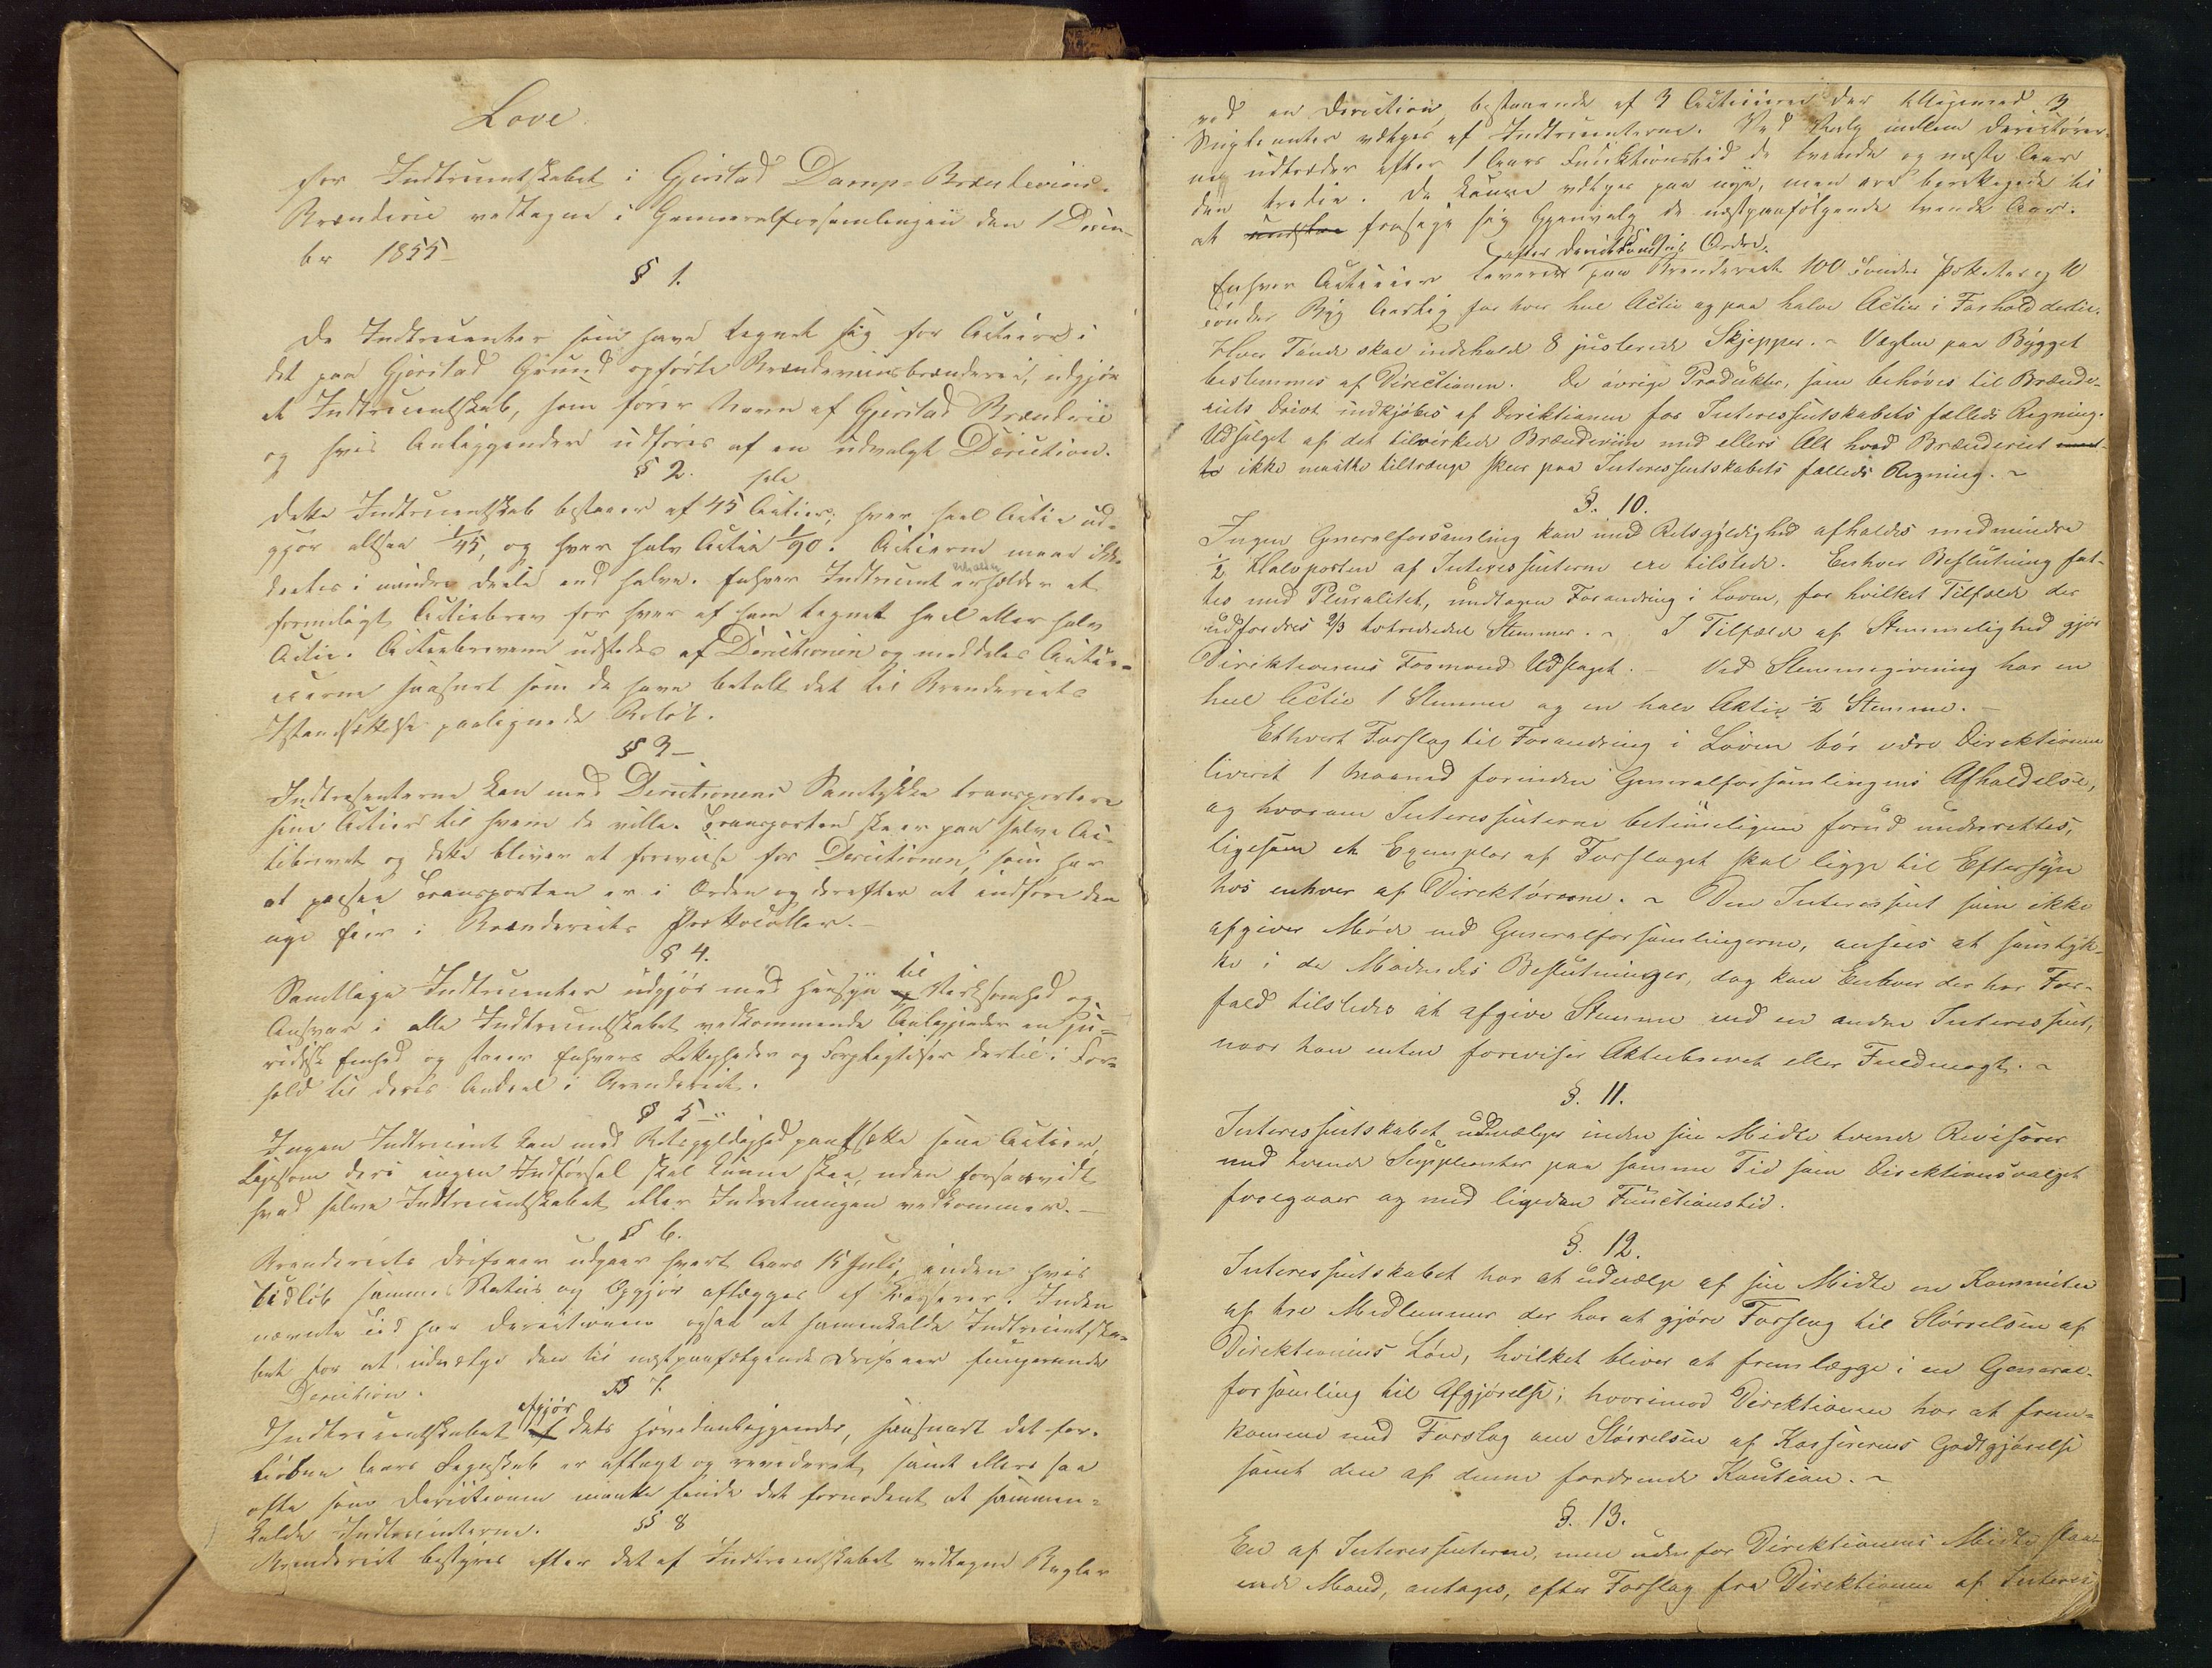 Love
for Indtresentskabet i Gjerstad Damp-Brændeviins-
Brænderie vedtagne i Generalforsamlingen den 1 Decem-
br 1855
§ 1.
De Indtresenter som have tegnet sig for Actier i
det paa Gjerstad Grund opførte Brændeviinsbrænderi, udgjør
et Indtresentskab, som fører Navn af Gjerstad Brænderie
og hvis Anliggender udføres af en udvalgt Direction.
§ 2.
Dette Indtresentskab bestaaer af 45 hele Actier; hver heel Actie ud-
gjør altsaa 1/45, og hver halv Actie 1/90. Actierne maae ikke
deeles i mindre deele end halve. Enhver Indtresent erholder et
formeligt Actiebrev for hver af ham tegnet heel eller halv
Actie. Actiebrevene udstedes af Directionen og meddeles Actio-
nairerne saasnart som de have betalt det til Brænderiets
Istandsættelse paalignede Beløb.
§ 3
Indtresenterne kan med Directionens Samtykke transportere
sine Actier til hvem de ville. Transporten skeer paa selve Ac-
tiebrevet og dette bliver at forevise for Directionen, som har
at paasee Transporten er i Orden og derefter at indføre den
nye Eier i Brænderiets Protocoller.
§ 4.
Samtlige Indtresenter udgjør med Hensyn til Virksomhed og
Ansvar i alle Indtresentskabet vedkommende Anliggender en ju-
ridisk Eenhed og staaer Enhvers Rettigheder og Forpligtelser dertil i For-
hold til deres Andeel i Brænderiet.
§ 5
Ingen Indtresent kan med Retsgyldighed pantsætte sine Actier,
ligesom deri ingen Indførsel skal kunne skee, uden forsaavidt
hvad selve Indtresentskabet eller Indretningen vedkommer.
§ 6.
Brænderiets Driftsaar udgaaer hvert Aars 15 Juli, inden hvis
Udløb sammes Status og Opgjør aflægges af Kasserer. Inden
nævnte Tid har Directionen ogsaa at sammenkalde Indtresentska-
bet for at udvælge den til næstpaafølgende Driftsaar fungerende
Direction.
§ 7.
Indtresentskabet afgjør dets Hovedanliggender, saasnart det for-
løbne Aars Regnskab er aflagt og revideret, samt ellers saa
ofte som Directionen maatte finde det fornødent at sammen-
kalde Indtresenterne.
§ 8
Brænderiet bestyres efter det af Indtresentskabet vedtagne Regler
ved en Direction, bestaaende af 3 Actionairer der tilligemed 3
Supleanter vælges af Indtresenterne. Ved Valg imellem Directører-
ne udtræder efter 1 Aars Funktionstid de tvende og næste Aar
den tredie. De kunne vælges paa nye, men ere berettigede til
at frasige sig Gjenvalg de næstpaafølgende tvende Aar.
efter Directionens Ordre.
Enhver Actionair leverer paa Brænderiet 100 Tønder Poteter og 10
Tønder Byg Aarlig for hver heel Actie og paa halve Actier i Forhold dertil.
Hver Tønde skal indeholde 8 justerede Skjepper. – Vægten paa Bygget
bestemmes af Directionen. De øvrige Produkter, som behøves til Brænde-
riets Drivt indkjøbes af Direktionen for Interessentskabets fælleds Regning.
Udsalget af det tilvirkede Brændeviin med ellers Alt hvad Brænderiet
ikke maatte tiltrænge skeer paa Interessentskabets fælleds Regning. ~
§. 10.
Ingen Generalforsamling kan med Retsgyldighed afholdes medmindre
1/2 Halvparten af Interessenterne ere tilstede. Enhver Beslutning fat-
tes med Pluralitet, undtagen Forandring i Loven, for hvilket Tilfælde der
udfordres 2/3 totrediedel Stemmer. ~ I Tilfælde af Stemmelighed gjør
Direktionens Formand Udslaget. – Ved Stemmegivning har en
heel Actie 1 Stemme og en halv Aktie 1/2 Stemme. –
Ethvert Forslag til Forandring i Loven bør være Direktionen
leveret 1 Maaned forinden Generalforsamlingens Afholdelse,
og hvorom Interessenterne betimeligen forud underrettes,
ligesom et Exemplar af Forslaget skal ligge til Eftersyn
hos enhver af Direktørerne. ~ Den Interessent som ikke
afgiver Møde ved Generalforsamlingerne, ansees at samtyk-
ke i de Mødendes Beslutninger, dog kan Enhver der har For-
fald tilstedes at afgive Stemme ved en anden Interessent,
naar han enten foreviser Aktiebrevet eller Fuldmagt. ~
§. 11.
Interessentskabet udvælger inden sin Midte tvende Revisorer
med tvende Suppleanter paa samme Tid som Direktionsvalget
foregaaer og med ligedan Functionstid.
§. 12.
Interessentskabet har at udvælge af sin Midte en Kommitee
af tre Medlemmer der har at gjøre Forslag til Størrelsen af
Direktionens Løn, hvilket bliver at fremlægge i en General-
forsamling til Afgjørelse; hvorimod Direktionen har at frem-
komme med Forslag om Størrelsen af Kassererens Godtgjørelse
samt den af denne fordrende Kaution. ~
§. 13.
En af Interessenterne, men udenfor Direktionens Midte staa-
ende Mand, antages, efter Forslag fra Direktionen af Interes-